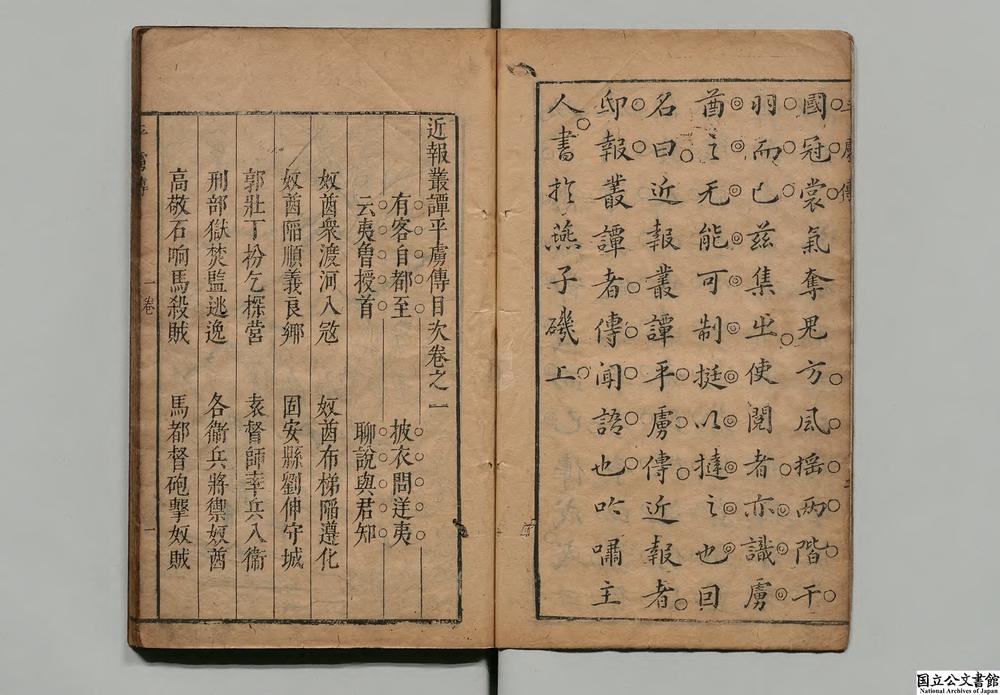 國冠裳氣奪鬼方風搖兩階干
羽而已茲集出使閱者亦識虜
酋之无能可制挺以撻之也回
名曰近報叢譚平虜傳近報者
邸報叢譚者傳聞語也吟嘯主
人書於燕子磯上
近報叢譚平虜傳目次卷之一
有客自都至 披衣問逆夷
云夷曾授首 聊說與君知
奴酋衆渡河入寇 奴酋布梯陷遵化
奴酋陷順義良鄉 固安縣劉伸守城
郭壯丁扮乞探營 袁督師率兵入衞
刑部獄焚監逃逸 各衞兵將禦奴酋
高敬石响馬殺賊 馬都督砲擊奴賊
一卷
一
国立公文書館
National Archives of Japan